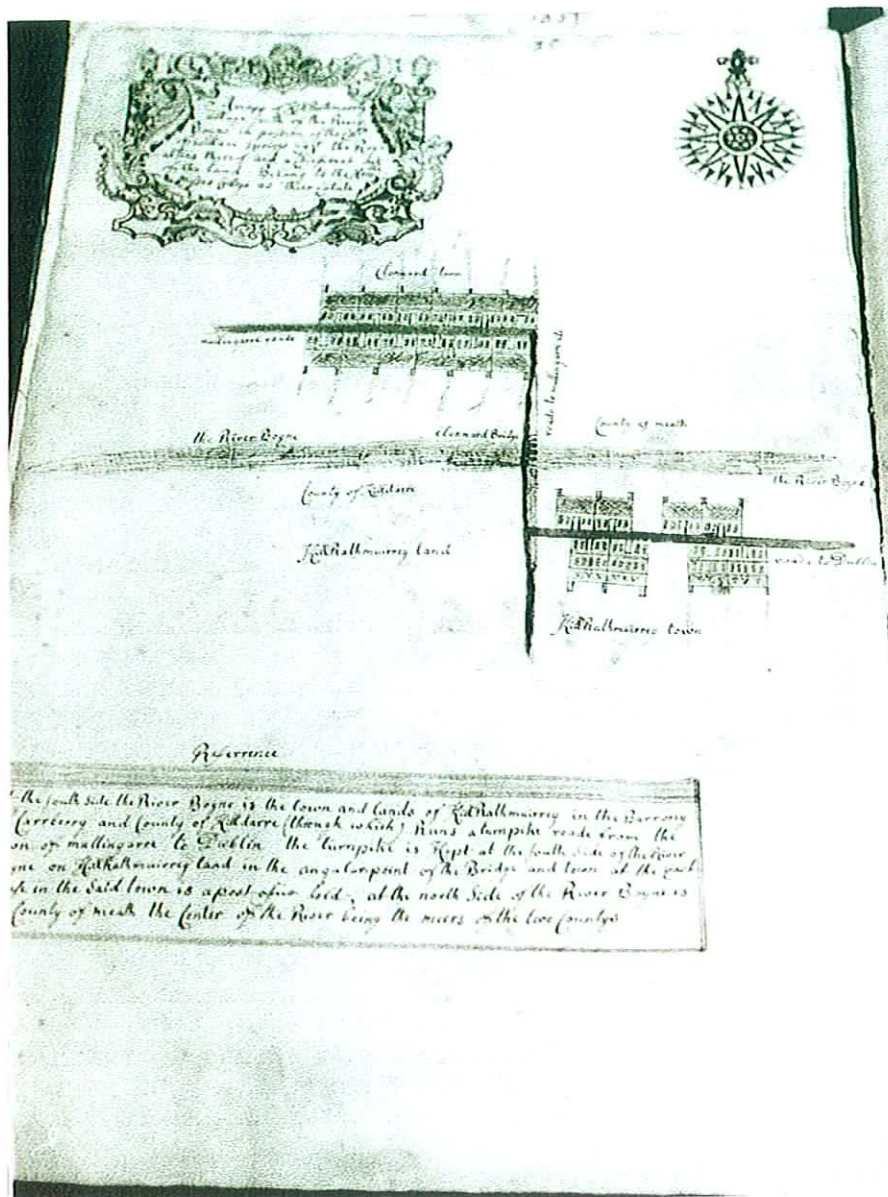 A mapp of
Village South of the River
Boyne in possession of the
of the River
and a
on the land Belong to the
as their estate
Clonnard town
mullingarre roade
roade to mullingarre &c
the River Boyne
Clonnard Bridge
County of meath
the River Boyne
County of Killdarre
KillRathmuirrey land
roade to Dublin
KillRathmuirrey town
Referrence
the south side the River Boyne is the town and lands of KillRathmuirrey in the Barrony
Carrberry and County of Killdarre (through which) Runs a turnpike roade from the
on of mullingarre to Dublin the turnpike is Kept at the south side of the River
yne on KillRathmuirrey land in the angular point of the Bridge and town at the
in the Said town is a post ofice held, at the north Side of the River Boyne is
County of meath the Center of the River being the meers of the two Countys